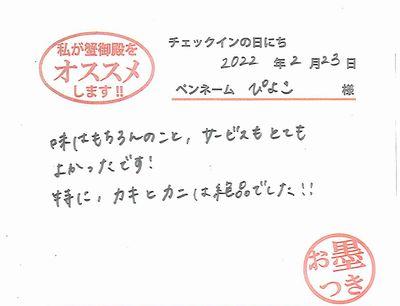 私が蟹御殿を
オススメ
します!!
チェックインの日にち
2022 年 2 月 23 日
ペンネーム ぴよこ 様
味はもちろんのこと、サービスもとても
よかったです!
特に、カキとカニは絶品でした!!
お墨
つき